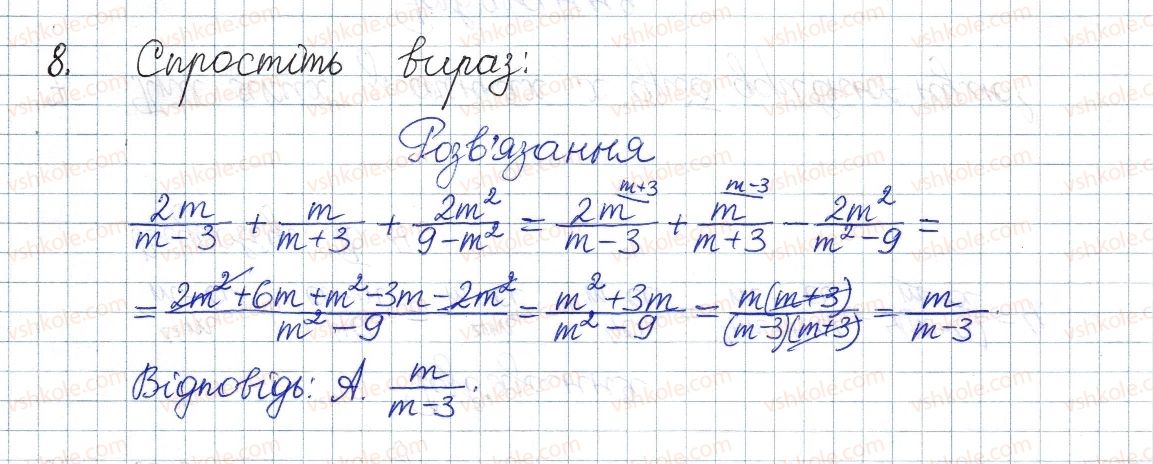 8. Спростіть вираз:
Розв'язання
2m/(m-3) + m/(m+3) + 2m²/(9-m²) = 2m^(m+3)/(m-3) + m^(m-3)/(m+3) - 2m²/(m²-9) =
= (2m²+6m+m²-3m-2m²)/(m²-9) = (m²+3m)/(m²-9) = m(m+3)/((m-3)(m+3)) = m/(m-3).
Відповідь: А. m/(m-3).